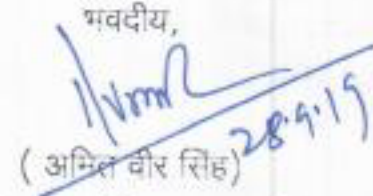 भवदीय,
28.9.19
( अमित वीर सिंह)